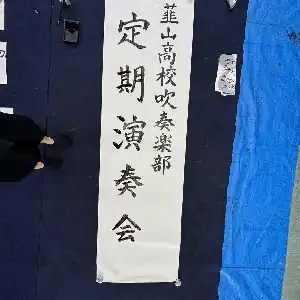 韮山高校吹奏楽部
定期演奏会